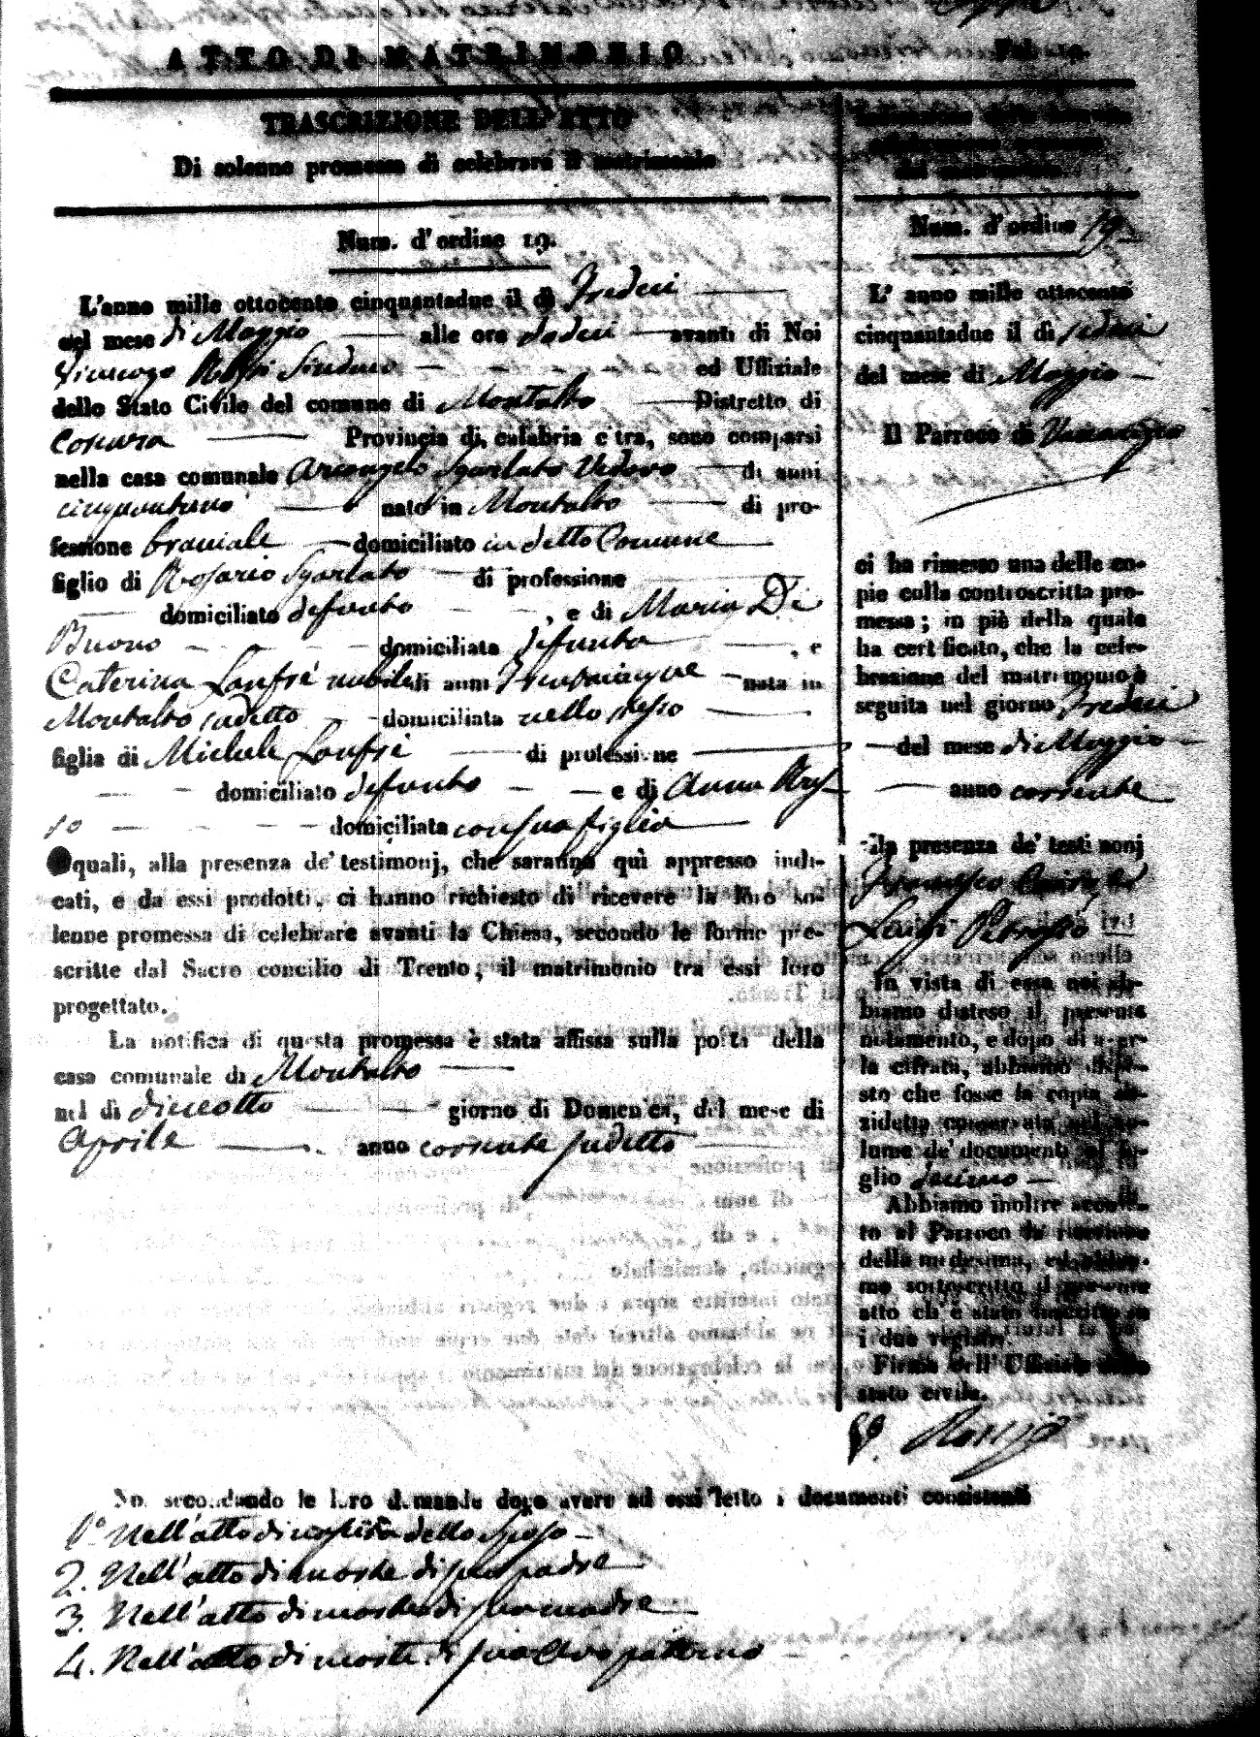 ATTO DI MATRIMONIO
TRASCRIZIONE DELL' ATTO
Di solenne promessa di celebrare il matrimonio
Num. d'ordine 19.
L'anno mille ottocento cinquantadue il dì Tredeci
del mese di Maggio alle ore dodeci avanti di Noi
Rossi Sindaco ed Uffiziale
dello Stato Civile del comune di Montalto Distretto di
Cosenza Provincia di calabria citra, sono comparsi
nella casa comunale Arcangelo Sgarlato Vedovo di anni
cinquantuno nato in Montalto di pro-
fessione braciale domiciliato in detto Comune
figlio di Rosario Sgarlato di professione
domiciliato defunto , e di Maria Di
Buono domiciliata defunta , e
Caterina Lanfrè nubile di anni nata in
Montalto sudetto domiciliata nello stesso
figlia di Michele Lanfrè di professione
domiciliato defunto e di Anna Rus-
so domiciliata con sua figlia
I quali, alla presenza de' testimonj, che saranno quì appresso indi-
cati, e da essi prodotti, ci hanno richiesto di ricevere la loro so-
lenne promessa di celebrare avanti la Chiesa, secondo le forme pre-
scritte dal Sacro concilio di Trento, il matrimonio tra essi loro
progettato.
La notifica di questa promessa è stata affissa sulla porta della
casa comunale di Montalto
nel dì dieceotto giorno di Domenica, del mese di
Aprile anno corrente sudetto
Num. d'ordine 19
L' anno mille ottocento
cinquantadue il dì sedeci
del mese di Maggio
Il Parroco di
ci ha rimesso una delle co-
pie colla controscritta pro-
messa; in piè della quale
ha certificato, che la cele-
brazione del matrimonio è
seguita nel giorno Tredeci
del mese di Maggio
anno corrente
alla presenza de' testimonj
Francesco
Luigi
In vista di essa noi ab-
biamo disteso il presente
notamento, e dopo di aver-
la cifrata, abbiamo dispo-
sto che fosse la copia an-
zidetta conservata nel vo-
lume de' documenti al fo-
glio decimo
Abbiamo inoltre accusa-
to al Parroco la ricezione
della medesima, ed abbia-
mo sottoscritto il presente
atto ch' è stato inscritto su
i due registri
Firma dell' Uffiziale dello
stato civile.
Rossi
Noi secondando le loro domande dopo avere ad essi letto i documenti consistenti
1° Nell'atto di nascita dello sposo
2. Nell'atto di morte di suo padre
3. Nell'atto di morte di sua madre
4. Nell'atto di morte di suo avo paterno